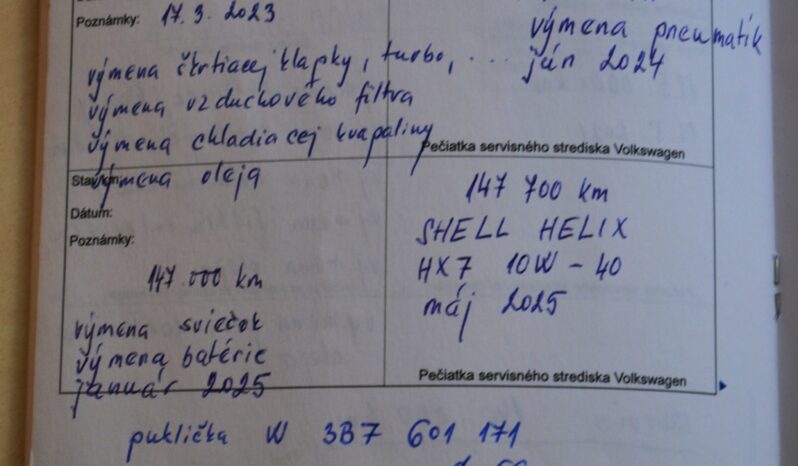 Poznámky: 17.3.2023
výmena škrtiacej klapky, turbo, ...
výmena vzduchového filtra
výmena chladiacej kvapaliny
výmena pneumatík
jún 2024
Pečiatka servisného strediska Volkswagen
výmena oleja
Dátum:
Poznámky:
147.000 km
výmena sviečok
výmena batérie
január 2025
147 700 km
SHELL HELIX
HX7 10W-40
máj 2025
Pečiatka servisného strediska Volkswagen
puklička W 3B7 601 171